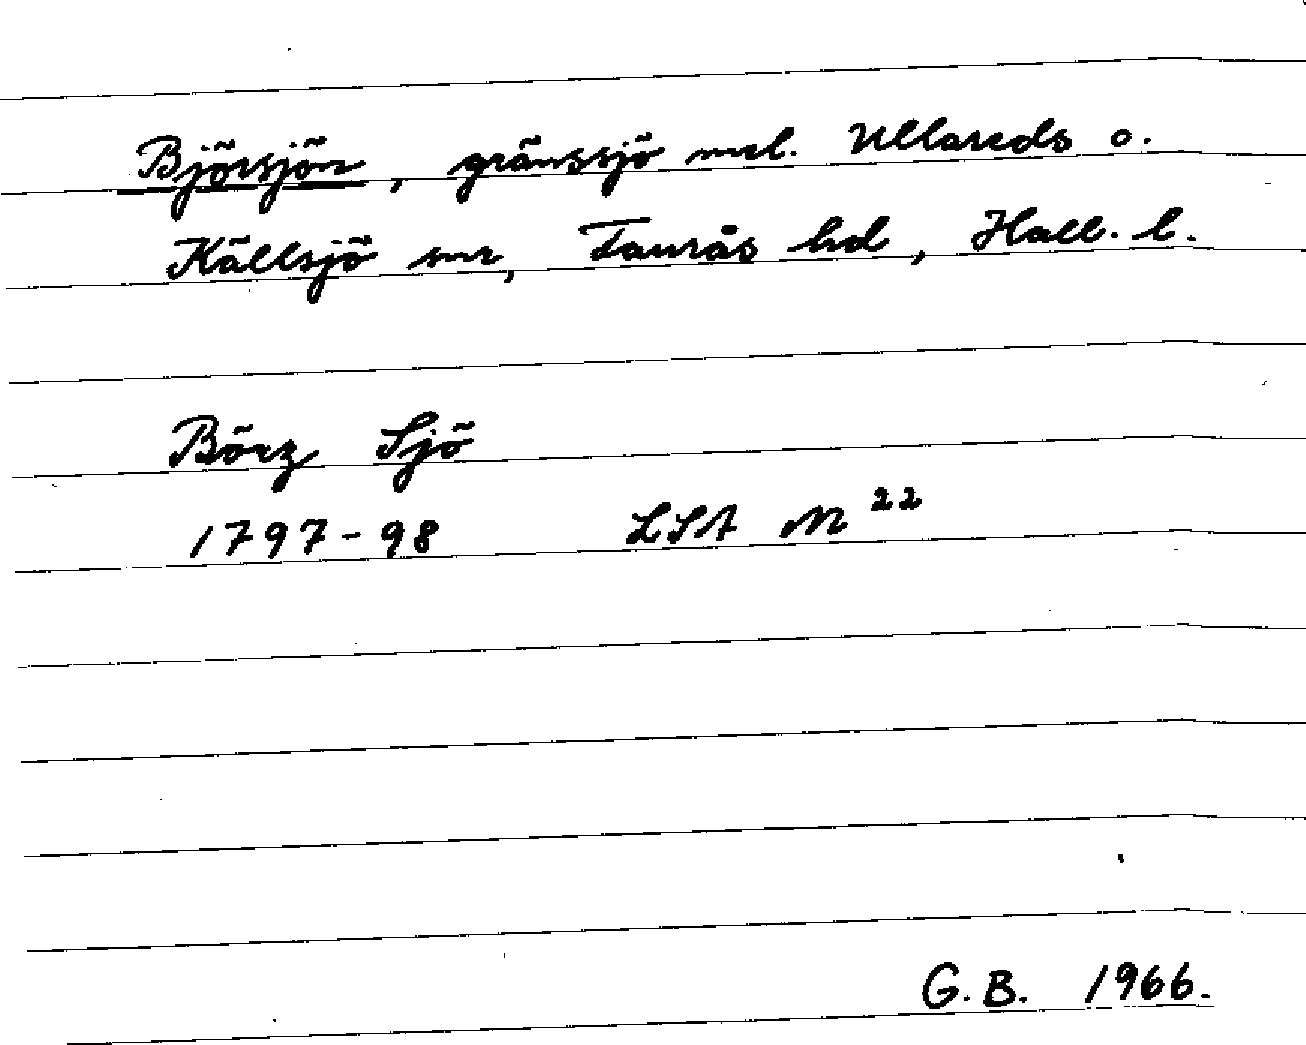 Björsjön, gränssjö mel. Ullareds o.
Källsjö snr, Faurås hd, Hall. l.
Börz Sjö
1797-98 LSA M 22
G.B. 1966.